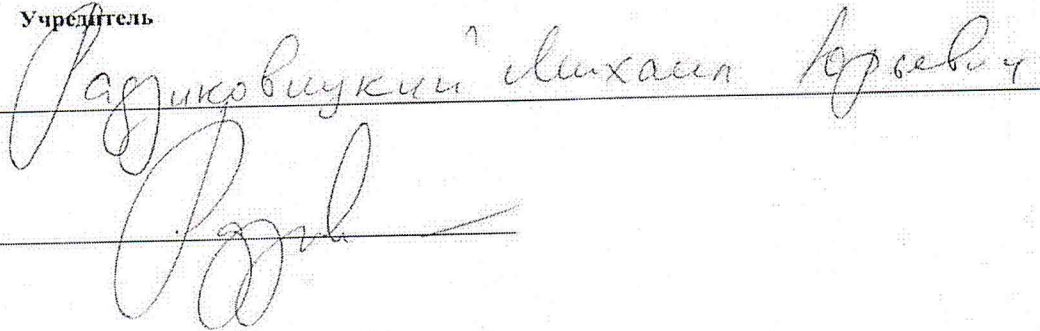 Учредитель
Радзиковицкий Михаил Юрьевич